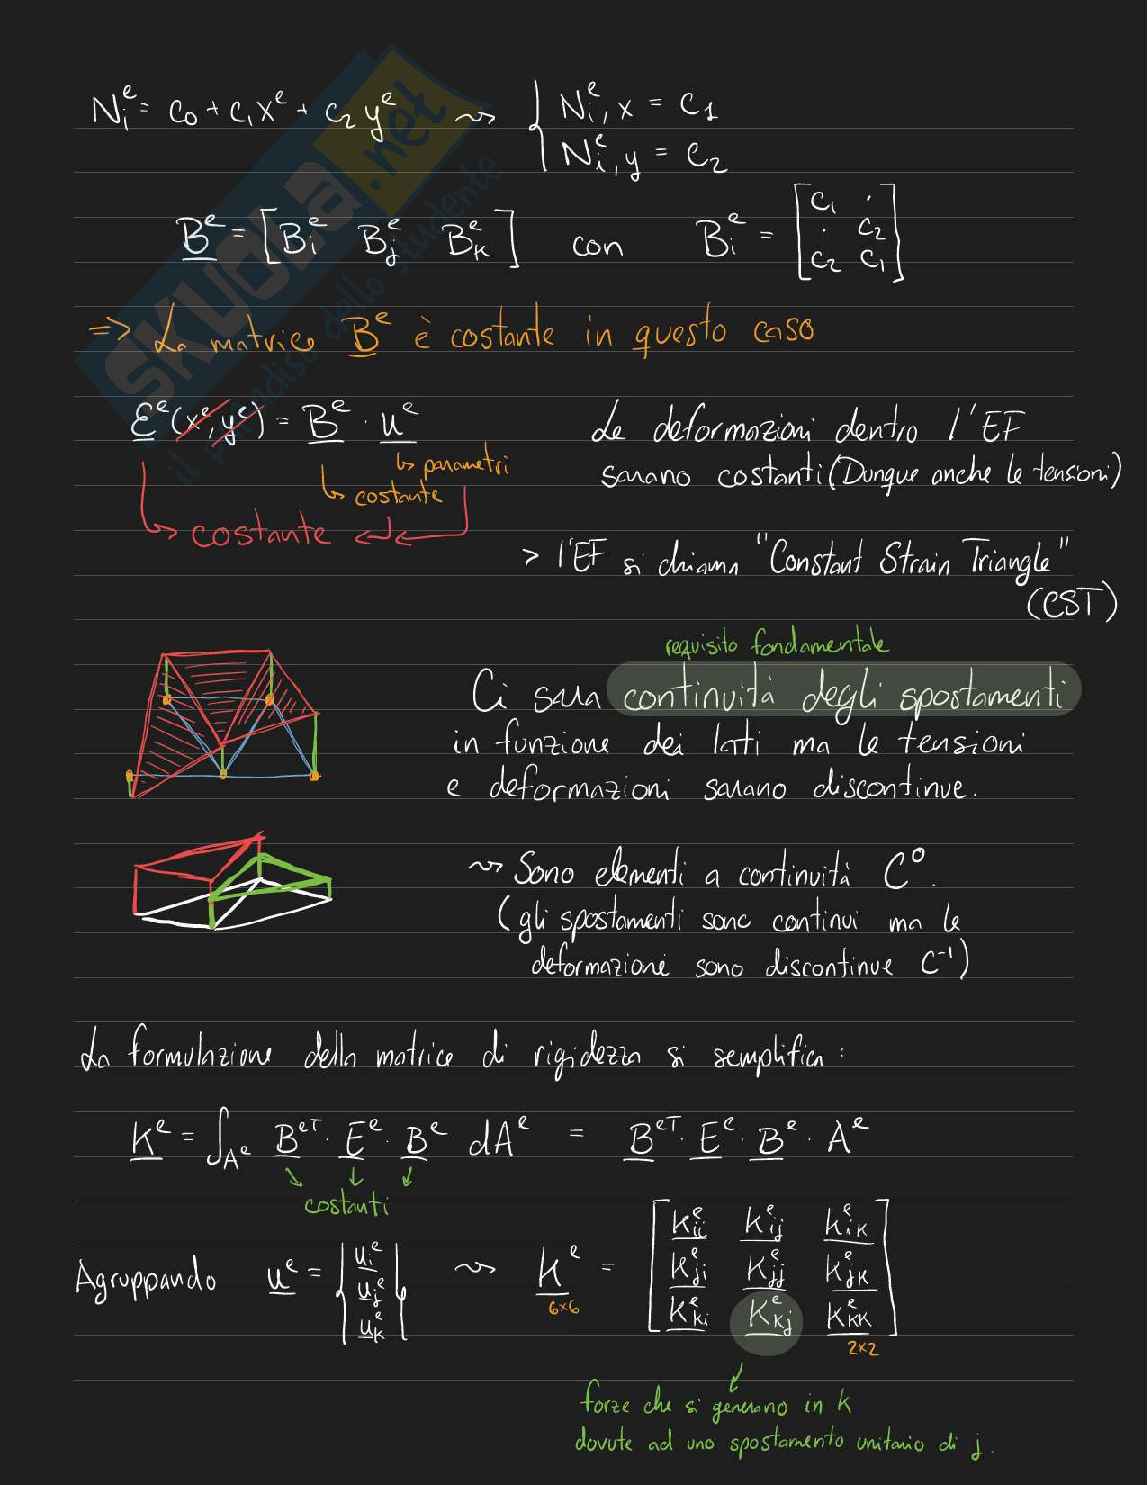 Nᵢᵉ = c₀ + c₁xᵉ + c₂yᵉ ⇝ { Nᵢᵉ,x = c₁
Nᵢᵉ,y = c₂
Bᵉ = [Bᵢᵉ Bⱼᵉ Bₖᵉ] con Bᵢᵉ = [c₁ · ; · c₂ ; c₂ c₁]
=> La matrice Bᵉ è costante in questo caso
εᵉ(xᵉ, yᵉ) = Bᵉ · uᵉ
↳ parametri
↳ costante
↳ costante
Le deformazioni dentro l'EF
sarano costanti (Dunque anche le tensioni)
> l'EF si chiama "Constant Strain Triangle"
(CST)
requisito fondamentale
Ci sara continuità degli spostamenti
in funzione dei lati ma le tensioni
e deformazioni sarano discontinue.
⇝ Sono elementi a continuità C⁰.
(gli spostamenti sono continui ma le
deformazioni sono discontinue C⁻¹)
La formulazione della matrice di rigidezza si semplifica:
Kᵉ = ∫Aᵉ Bᵉᵀ · Eᵉ · Bᵉ dAᵉ = Bᵉᵀ · Eᵉ · Bᵉ · Aᵉ
costanti
Agruppando uᵉ = {uᵢᵉ ; uⱼᵉ ; uₖᵉ} ⇝ Kᵉ = [Kᵉii Kᵉij Kᵉik ; Kᵉji Kᵉjj Kᵉjk ; Kᵉki Kᵉkj Kᵉkk]
6×6
2×2
forze che si generano in k
dovute ad uno spostamento unitario di j.
SKUOLA.net
il paradiso dello studente